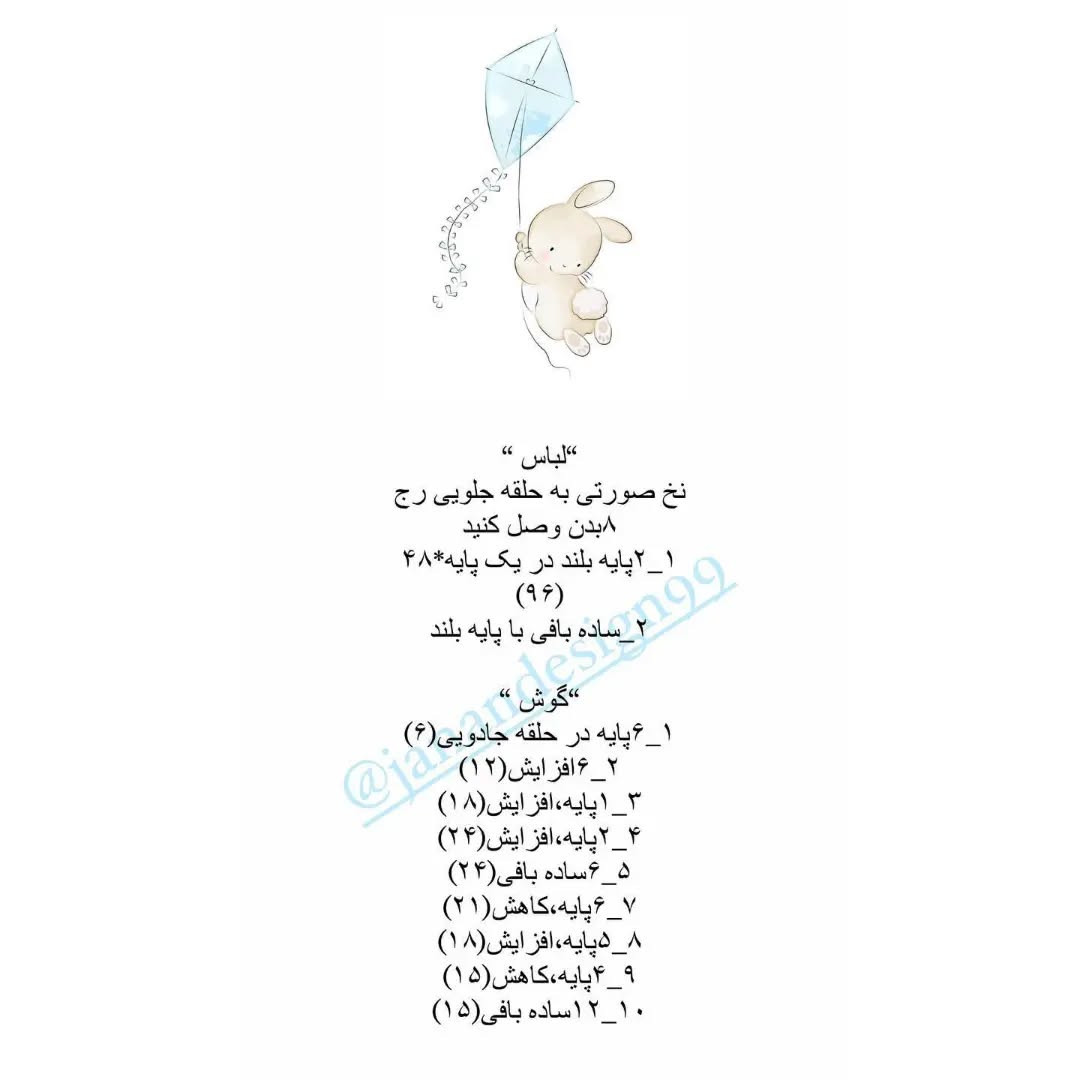 “لباس “
نخ صورتی به حلقه جلویی رج
۸بدن وصل کنید
۱_۲پایه بلند در یک پایه*۴۸
(۹۶)
۲_ساده بافی با پایه بلند
“گوش “
۱_۶پایه در حلقه جادویی(۶)
۲_۶افزایش(۱۲)
۳_۱پایه،افزایش(۱۸)
۴_۲پایه،افزایش(۲۴)
۵_۶ساده بافی(۲۴)
۷_۶پایه،کاهش(۲۱)
۸_۵پایه،افزایش(۱۸)
۹_۴پایه،کاهش(۱۵)
۱۰_۱۲ساده بافی(۱۵)
@janandesign99